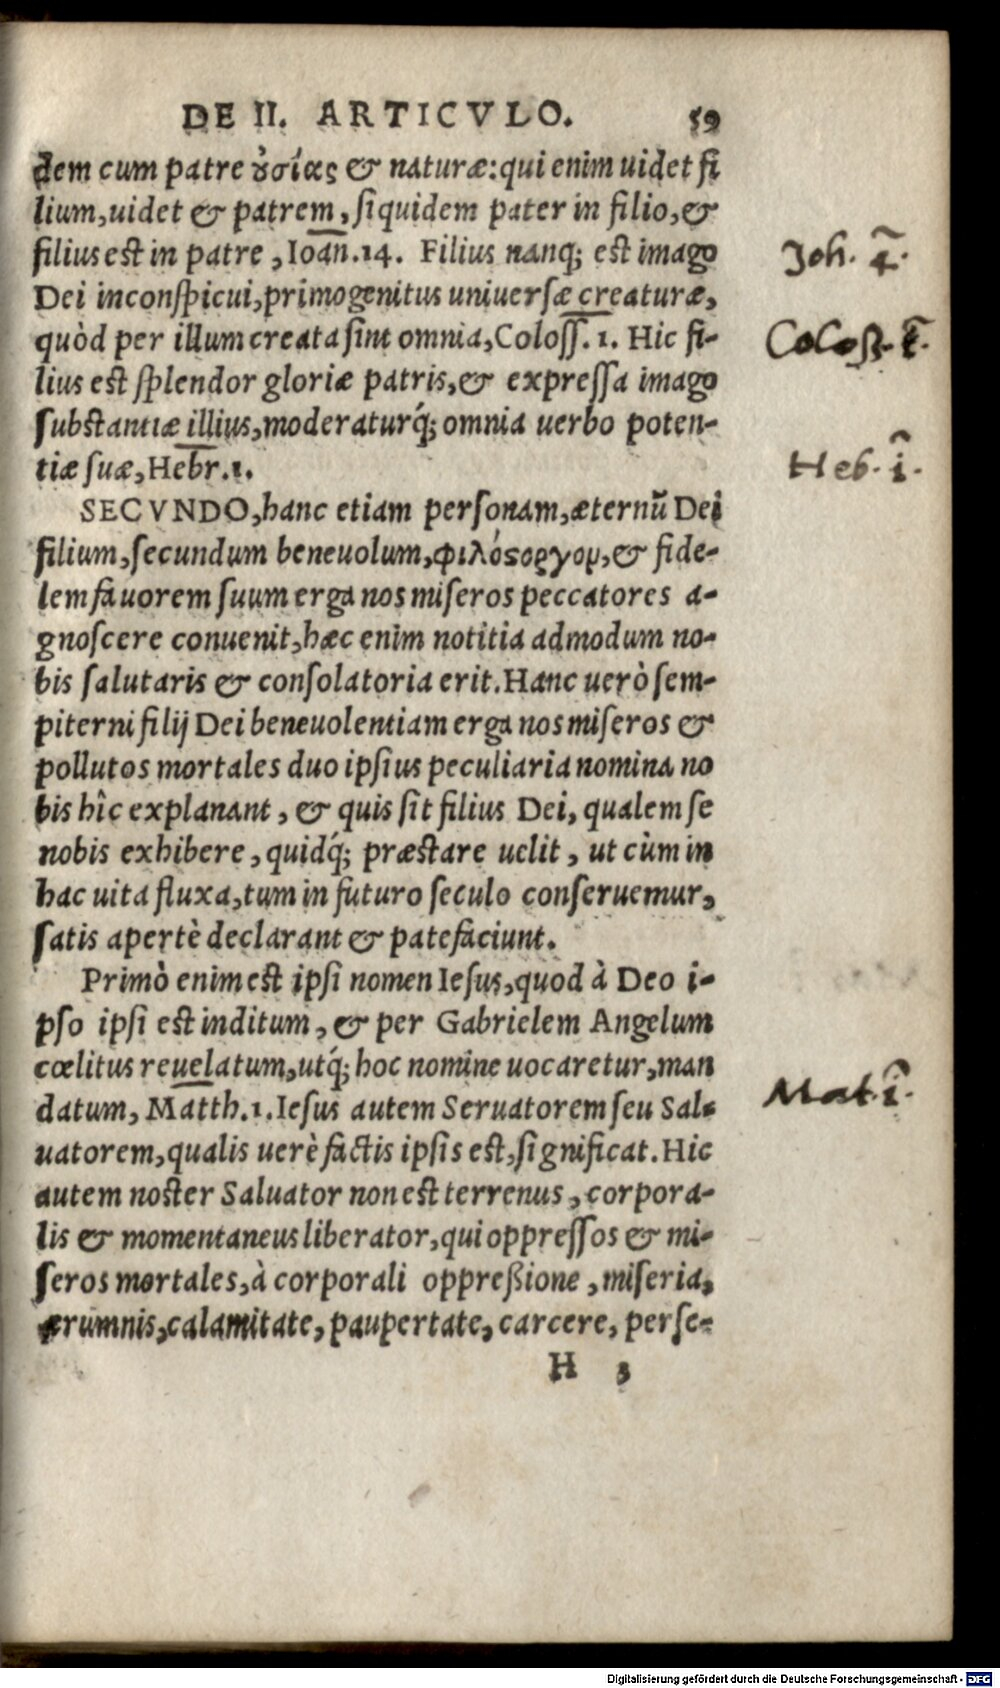 DE II. ARTICVLO. 59
dem cum patre ȣσίας & naturæ: qui enim uidet fi
lium, uidet & patrem, siquidem pater in filio, &
filius est in patre, Ioan.14. Filius nanq; est imago
Joh. 4.
Dei inconspicui, primogenitus uniuersæ creaturæ,
quòd per illum creata sint omnia, Coloss. 1. Hic fi-
Coloß. 1.
lius est splendor gloriæ patris, & expressa imago
substantiæ illius, moderaturq́; omnia uerbo poten-
tiæ suæ, Hebr.1.
Heb. i.
SECVNDO, hanc etiam personam, æternũ Dei
filium, secundum beneuolum, φιλόϛοργον, & fide-
lem fauorem suum erga nos miseros peccatores a-
gnoscere conuenit, hæc enim notitia admodum no-
bis salutaris & consolatoria erit. Hanc uerò sem-
piterni filij Dei beneuolentiam erga nos miseros &
pollutos mortales duo ipsius peculiaria nomina no
bis hîc explanant, & quis sit filius Dei, qualem se
nobis exhibere, quidq́; præstare uelit, ut cùm in
hac uita fluxa, tum in futuro seculo conseruemur,
satis apertè declarant & patefaciunt.
Primò enim est ipsi nomen Iesus, quod à Deo i-
pso ipsi est inditum, & per Gabrielem Angelum
cœlitus reuelatum, utq́; hoc nomine uocaretur, man
datum, Matth.1. Iesus autem Seruatorem seu Sal-
Mat. i.
uatorem, qualis uerè factis ipsis est, significat. Hic
autem noster Saluator non est terrenus, corpora-
lis & momentaneus liberator, qui oppressos & mi-
seros mortales, à corporali oppreßione, miseria,
ærumnis, calamitate, paupertate, carcere, perse-
H 3
Digitalisierung gefördert durch die Deutsche Forschungsgemeinschaft - DFG